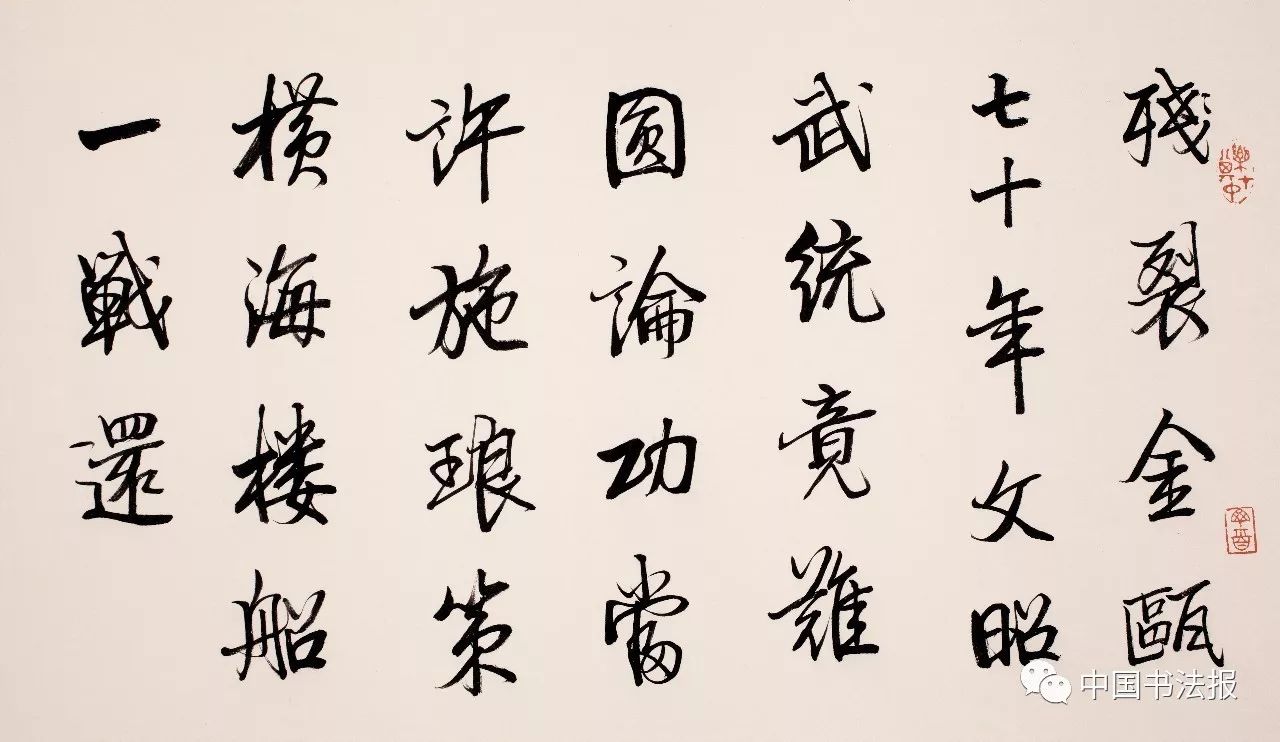 殘裂金甌
七十年文昭
武統竟難
圆論功當
許施琅策
横海楼船
一戰還
中国书法报